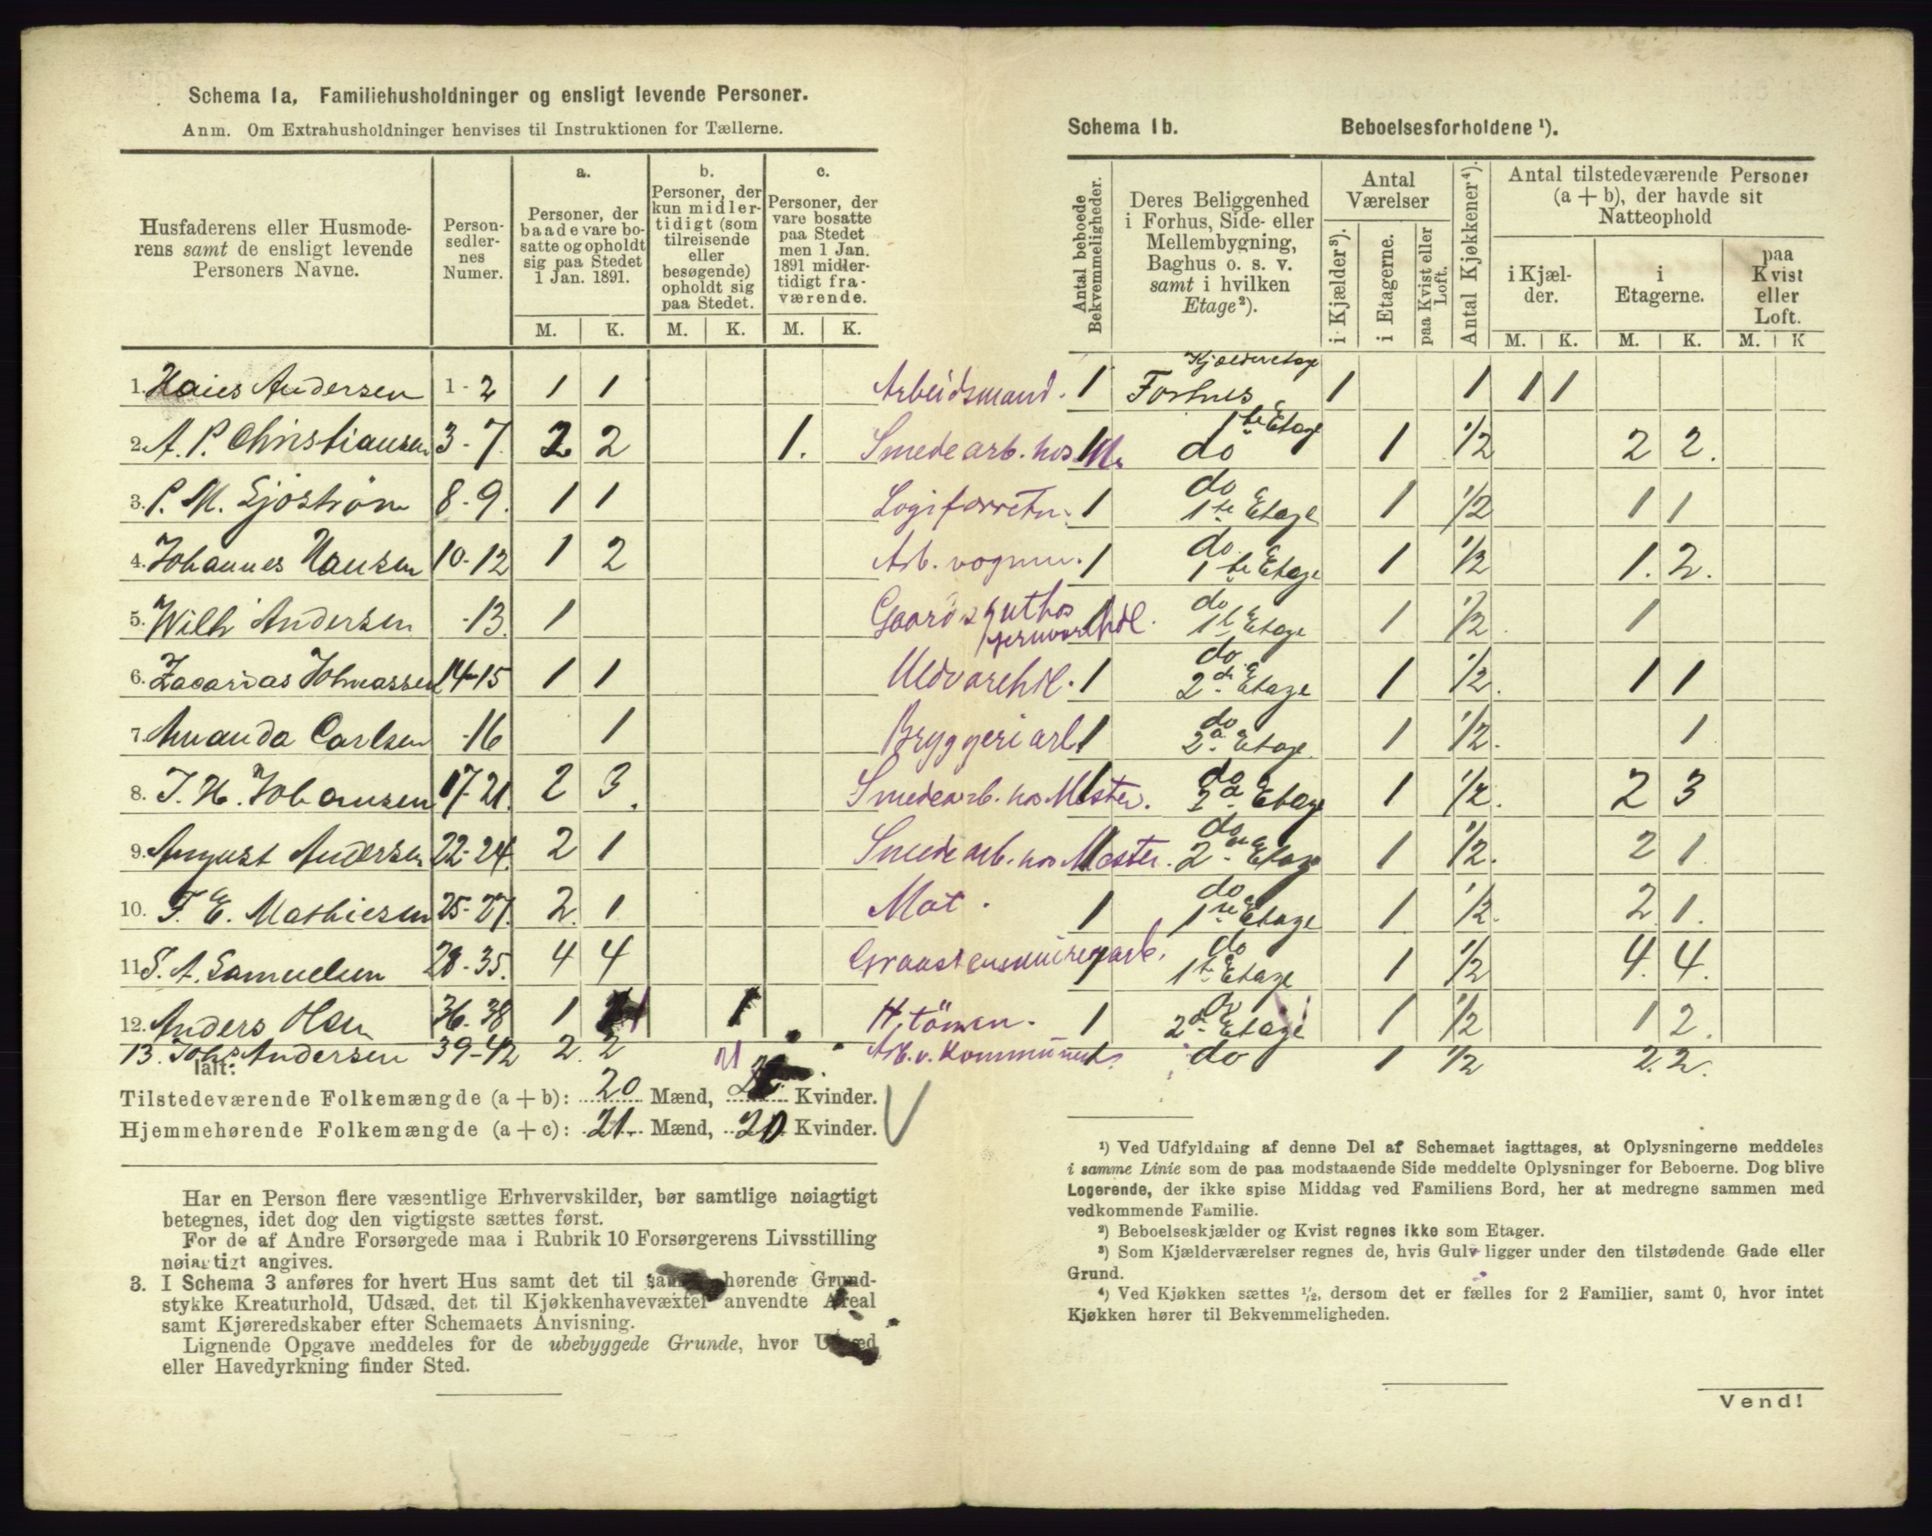 Schema 1a, Familiehusholdninger og ensligt levende Personer.
Anm. Om Extrahusholdninger henvises til Instruktionen for Tællerne.
Husfaderens eller Husmoderens samt de ensligt levende Personers Navne.
Personsedlernes Numer.
a.
Personer, der baade vare bosatte og opholdt sig paa Stedet 1 Jan. 1891.
b.
Personer, der kun midlertidigt (som tilreisende eller besøgende) opholdt sig paa Stedet.
c.
Personer, der vare bosatte paa Stedet men 1 Jan. 1891 midlertidigt fraværende.
M. K. M. K. M. K.
1. Hans Andersen 1-2 1 1 Arbeidsmand.
2. A. P. Christiansen 3-7. 2 2 1. Smedearb. hos M.
3. P. M. Sjöström 8-9. 1 1 Logiforretn.
4. Johannes Hansen 10-12 1 2 Arb. vognm.
5. Wilh Andersen -13. 1 Gaardsgut hos
6. Zacarias Johnassen 14-15 1 1 Uldvarehdl.
7. Amanda Carlsen -16 1 Bryggeriarb
8. J. H. Johansen 17-21. 2 3. Smedearb. hos Mester.
9. August Andersen 22-24. 2 1 Smedearb. hos Mester.
10. F. E. Mathiesen 25-27. 2. 1 Mat.
11. S. A. Samuelsen 28-35. 4 4
12. Anders Olsen 36-38 1 1 1 H. tömm.
13. Johs Andersen 39-42 2. 2 Arb. v. Kommunen
Ialt:
21
Tilstedeværende Folkemængde (a + b): 20 Mænd, Kvinder.
Hjemmehørende Folkemængde (a + c): 21. Mænd, 20 Kvinder.
Har en Person flere væsentlige Erhvervskilder, bør samtlige nøiagtigt
betegnes, idet dog den vigtigste sættes først.
For de af Andre Forsørgede maa i Rubrik 10 Forsørgerens Livsstilling
nøiagtigt angives.
3. I Schema 3 anføres for hvert Hus samt det til hørende Grund-
stykke Kreaturhold, Udsæd, det til Kjøkkenhavevæxter anvendte Areal
samt Kjøreredskaber efter Schemaets Anvisning.
Lignende Opgave meddeles for de ubebyggede Grunde, hvor Udsæd
eller Havedyrkning finder Sted.
Schema 1b. Beboelsesforholdene ¹).
Antal beboede Bekvemmeligheder.
Deres Beliggenhed i Forhus, Side- eller Mellembygning, Baghus o. s. v. samt i hvilken Etage²).
Antal Værelser
i Kjælder³).
i Etagerne.
paa Kvist eller Loft.
Antal Kjøkkener⁴).
Antal tilstedeværende Personer (a + b), der havde sit Natteophold
i Kjælder.
i Etagerne.
paa Kvist eller Loft.
M. K. M. K. M. K
1 Forhus Kjælderetage 1 1 1 1
1 do 1te Etage 1 1/2 2 2.
1 do 1te Etage 1 1/2 1 1
1 do 1te Etage 1 1/2 1. 2.
1 do 1t Etage 1 1/2. 1
1 do 2den Etage 1 1/2. 1 1
1 do 2d. Etage 1 1/2. 1
1 do 2d Etage 1 1/2. 2 3
1 do 2den Etage 1 1/2. 2 1
1 do 1te Etage 1 1/2. 2. 1.
1 do 1t. Etage 1 1/2 4. 4.
1 do 2d. Etage 1 1/2 1 2.
1 do 1 1/2 2. 2.
¹) Ved Udfyldning af denne Del af Schemaet iagttages, at Oplysningerne meddeles
i samme Linie som de paa modstaaende Side meddelte Oplysninger for Beboerne. Dog blive
Logerende, der ikke spise Middag ved Familiens Bord, her at medregne sammen med
vedkommende Familie.
²) Beboelseskjælder og Kvist regnes ikke som Etager.
³) Som Kjælderværelser regnes de, hvis Gulv ligger under den tilstødende Gade eller
Grund.
⁴) Ved Kjøkken sættes 1/2, dersom det er fælles for 2 Familier, samt 0, hvor intet
Kjøkken hører til Bekvemmeligheden.
Vend!